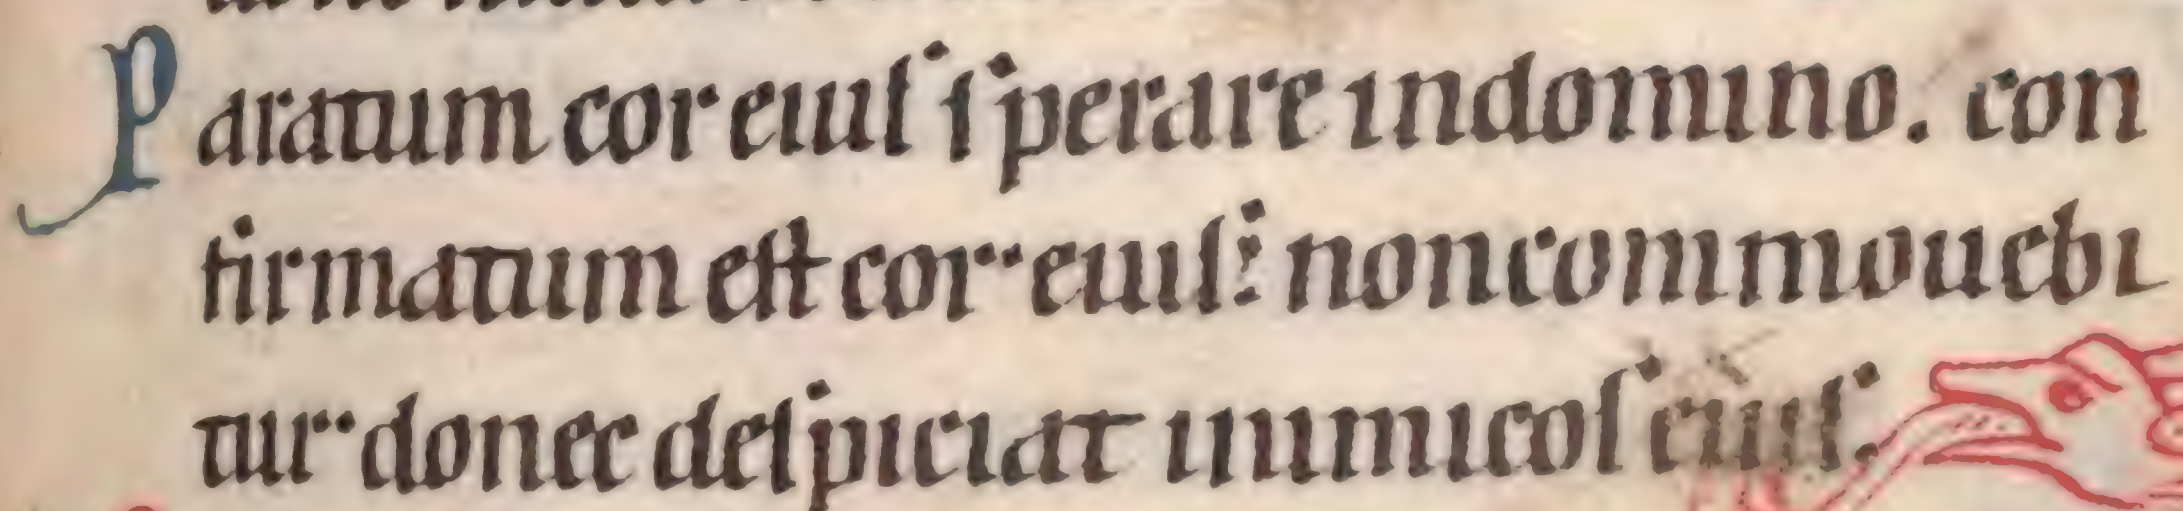 Paratum cor eius sperare indomino. con
firmatum est cor eius: noncommouebi
tur donec despiciat inimicos eius.